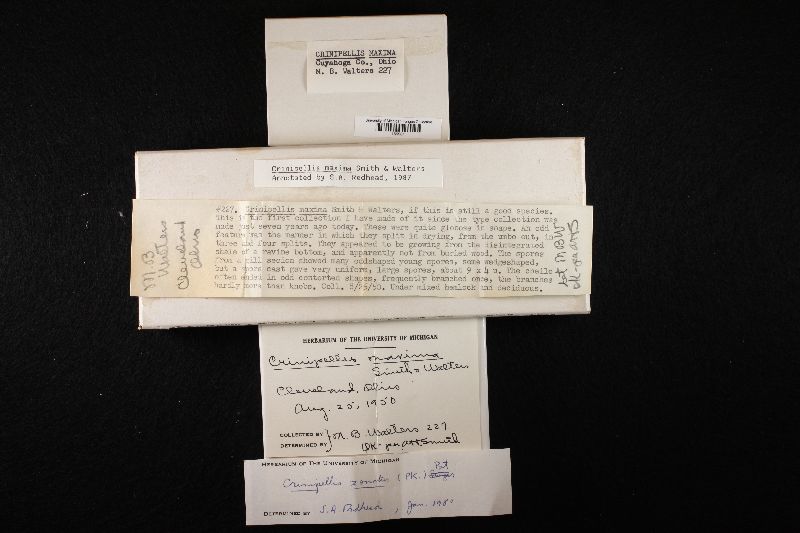 CRINIPELLIS MAXIMA
Cuyahoga Co., Ohio
M. B. Walters 227
Crinipellis maxima Smith & Walters
Annotated by S.A. Redhead, 1987
#227. Crinipellis maxima Smith & Walters, if this is still a good species.
This is the first collection I have made of it since the type collection was
made just seven years ago today. These were quite glocose in shape. An odd
feature was the manner in which they split in drying, from the umbo out, in
three and four splits. They appeared to be growing from the disintegrated
shale of a ravine bottom, and apparently not from buried wood. The spores
from a gill section showed many oddshaped young spores, some wedgeshaped,
but a spore cast gave very uniform, large spores, about 9 x 4 u. The
often ended in odd contorted shapes, frequently branched once, the branches
hardly more than knobs. Coll. 8/25/50. Under mixed hemlock and deciduous.
M.B
Walters
Cleveland
Ohio
Det MBW
HERBARIUM OF THE UNIVERSITY OF MICHIGAN
Crinipellis maxima
Smith & Walters
Cleveland, Ohio
Aug. 25, 1950
COLLECTED BY M. B. Walters 227
DETERMINED BY OK-per AH Smith
HERBARIUM OF THE UNIVERSITY OF MICHIGAN
Crinipellis zonata (PK.) Pat
DETERMINED BY S.A. Redhead, Jan.